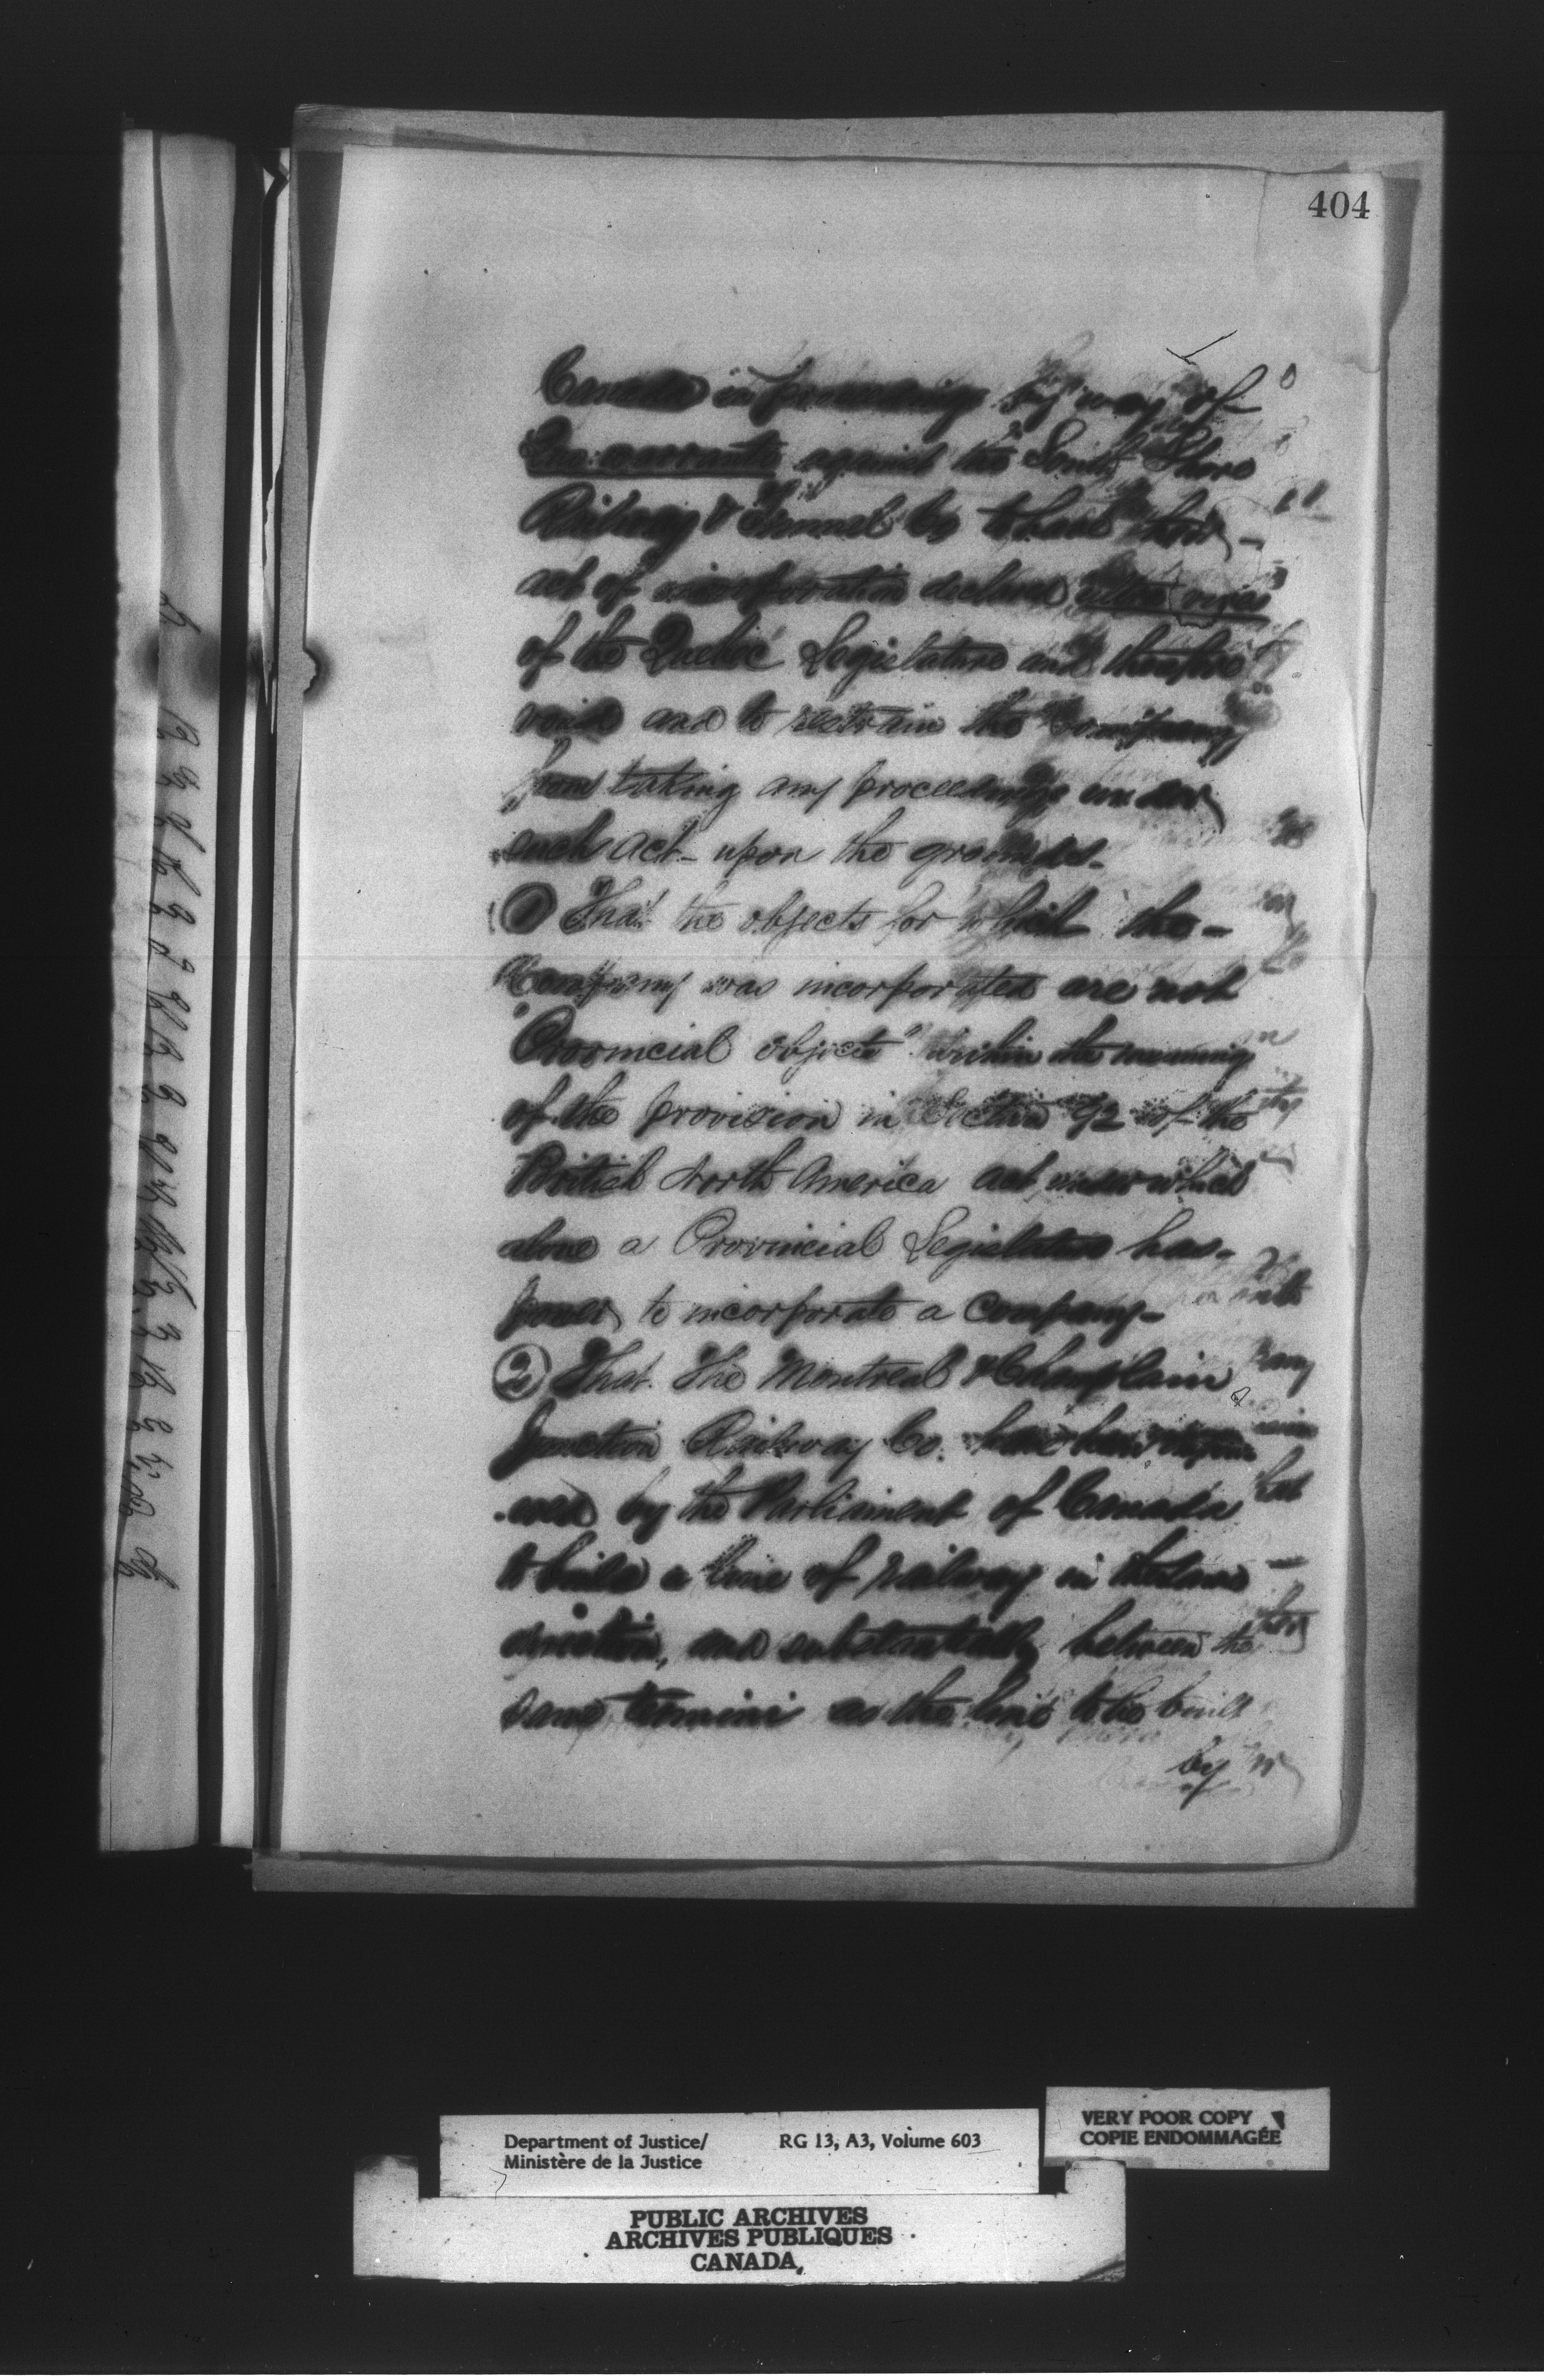 404
Canada in proceedings by way of
Quo warranto against the South Shore
Railway & Tunnel Co to have their
act of incorporation declared ultra vires
of the Quebec Legislature and therefore
void and to restrain the Company
from taking any proceedings under
such act - upon the grounds -
(1) That the objects for which the -
Company was incorporated are not
"Provincial objects" within the meaning
of the provision in Section 92 of the
British North America act under which
alone a Provincial Legislature has -
power to incorporate a company -
(2) That the Montreal & Champlain
Junction Railway Co. have been
by the Parliament of Canada
to build a line of railway in the same
direction, and substantially between the
same termini as the line to be built
by
Department of Justice/
Ministère de la Justice
RG 13, A3, Volume 603
VERY POOR COPY
COPIE ENDOMMAGÉE
PUBLIC ARCHIVES
ARCHIVES PUBLIQUES
CANADA